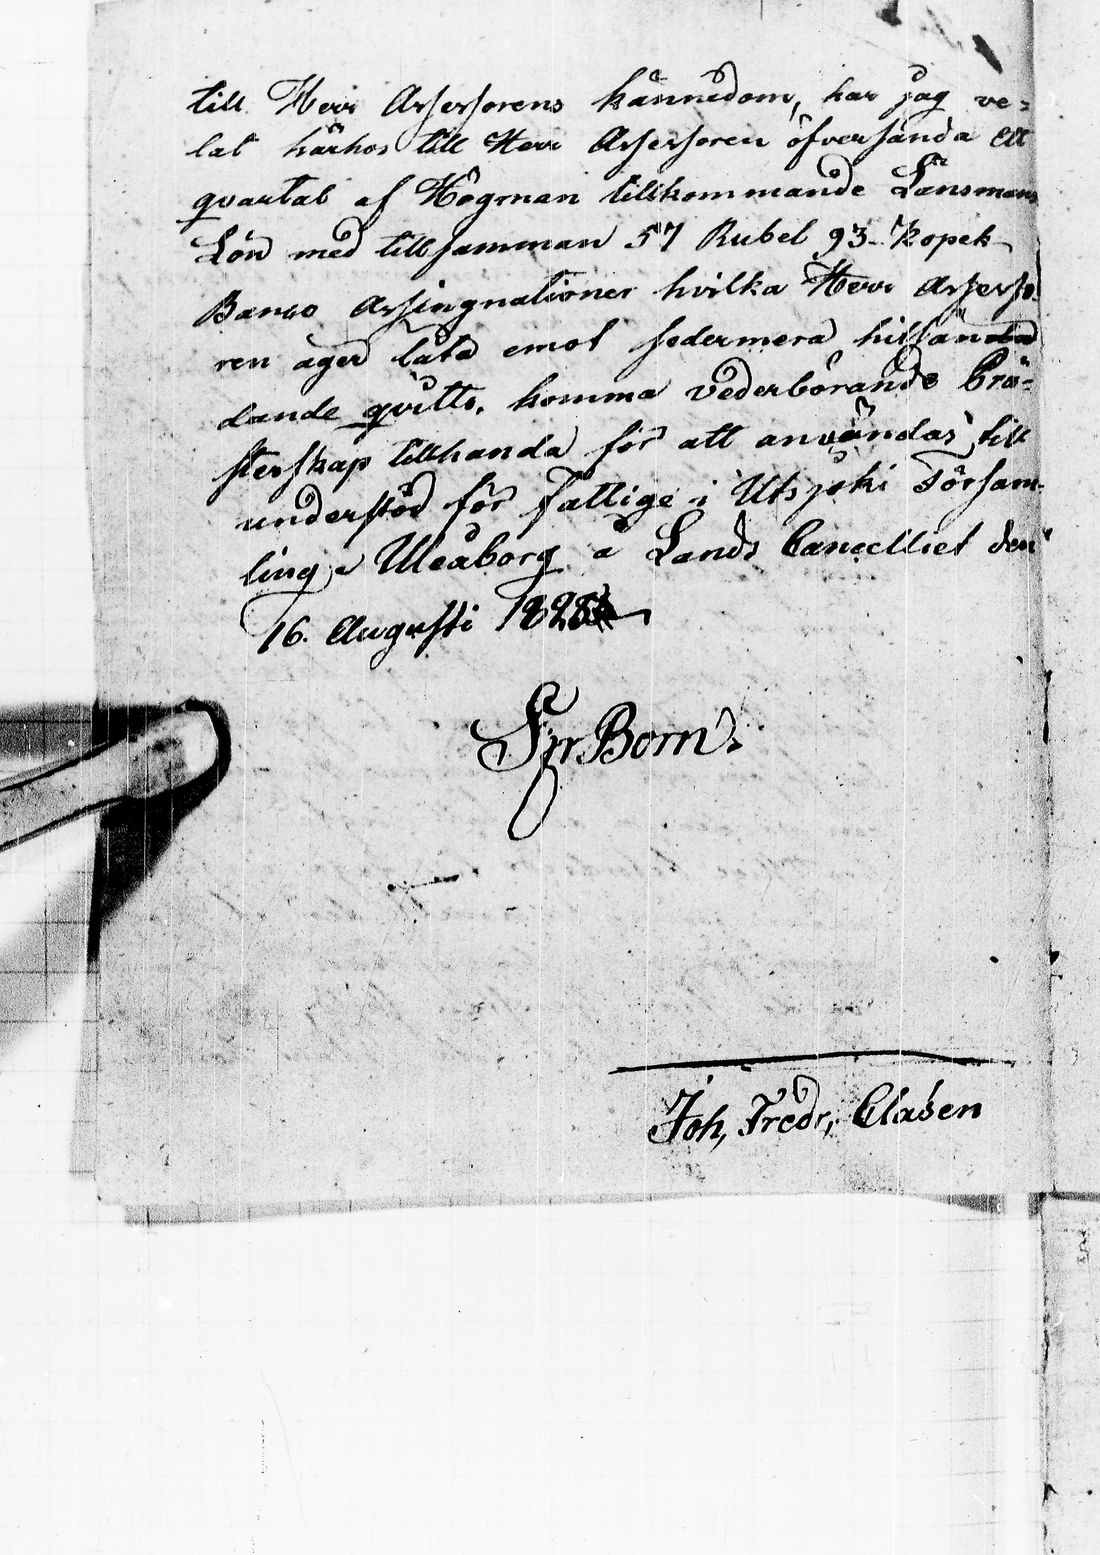 till Herr Assessorens kännedom, har jag ve-
lat härhos till Herr Assessoren öfversända Ett
qvartal af Högman tillkommande Länsmans
Lön med tillsamman 57 Rubel 93 Kopek
Banco Assingnationer hvilka Herr Assesso
ren äger låta emot sedermera hitsändan
dande qvitto, komma vederbörande Prä-
sterskap tillhanda för att användas till
understöd för Fattige i Utsjoki Försam-
ling. Uleåborg å Lands Cancelliet den
16. Augusti 1828
Born
Joh, Fredr, Clasen